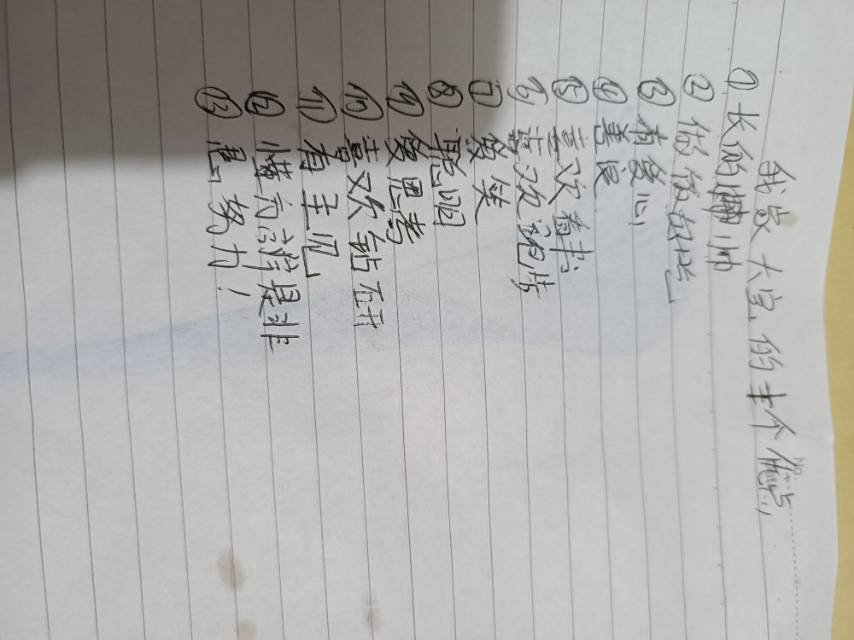 我 大宝的 个优点
① 长的帅
② 做饭好吃
③ 有爱心
④ 善良
⑤ 喜欢看书
⑥ 喜欢跑步
⑦ 爱笑
⑧ 聪明
⑨ 爱思考
⑩ 喜欢钻研
⑪ 有主见
⑫ 懂有 是非
⑬ 努力！
No